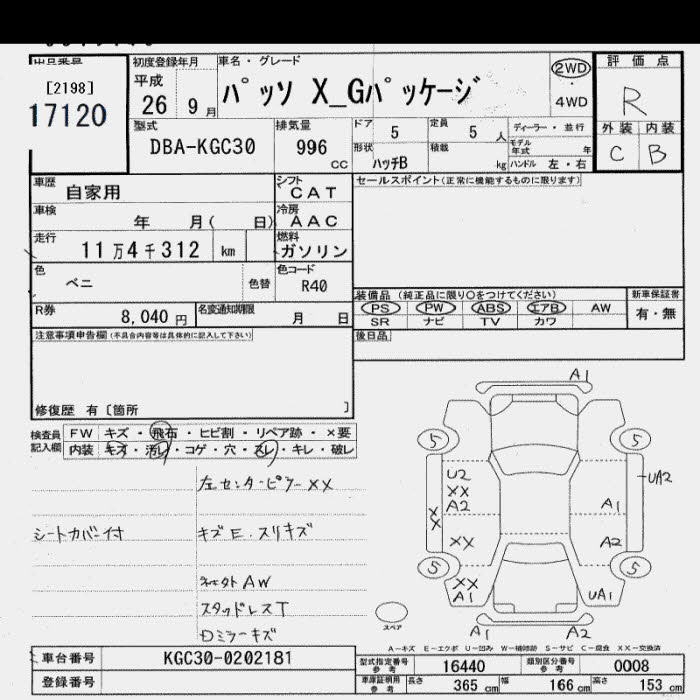 出品番号
[2198]
17120
初度登録年月
平成
26 9月
車名・グレード
パッソ X_Gパッケージ
2WD
・
4WD
評価点
R
外装 内装
C B
型式
DBA-KGC30
排気量
996 cc
ドア 5
定員 5人
形状 ハッチB
積載 kg
ディーラー・並行
モデル年式 年
ハンドル 左・右
車歴 自家用
シフト CAT
セールスポイント(正常に機能するものに限ります)
車検 年 月( 日)
冷房 AAC
走行 11万4千312 km
燃料 ガソリン
色 ベニ 色替
色コード R40
装備品 (純正品に限り○をつけてください)
新車保証書
PS PW ABS エアB AW
有・無
SR ナビ TV カワ
R券 8,040円
名変通知期限 月 日
注意事項申告欄(不具合内容等は具体的に記入して下さい)
後日品
修復歴 有〔箇所 〕
検査員記入欄
FW キズ・飛石・ヒビ割・リペア跡・×要
内装 キズ・汚レ・コゲ・穴・スレ・キレ・破レ
左センターピラーXX
シートカバー付
キズE.スリキズ
AW
スタッドレスT
Dミラーキズ
A1
5 5
U2
XX
A2
UA2
X
X
A1
XX
A2
5 5
XX
A1
UA1
スペア
A1 A2
A-キズ E-エクボ U-凹み W-補修跡 S-サビ C-腐食 XX-交換済
車台番号 KGC30-0202181
登録番号
型式指定番号 参考 16440
類別区分番号 参考 0008
車庫証明用 参考 長さ 365cm 幅 166cm 高さ 153cm